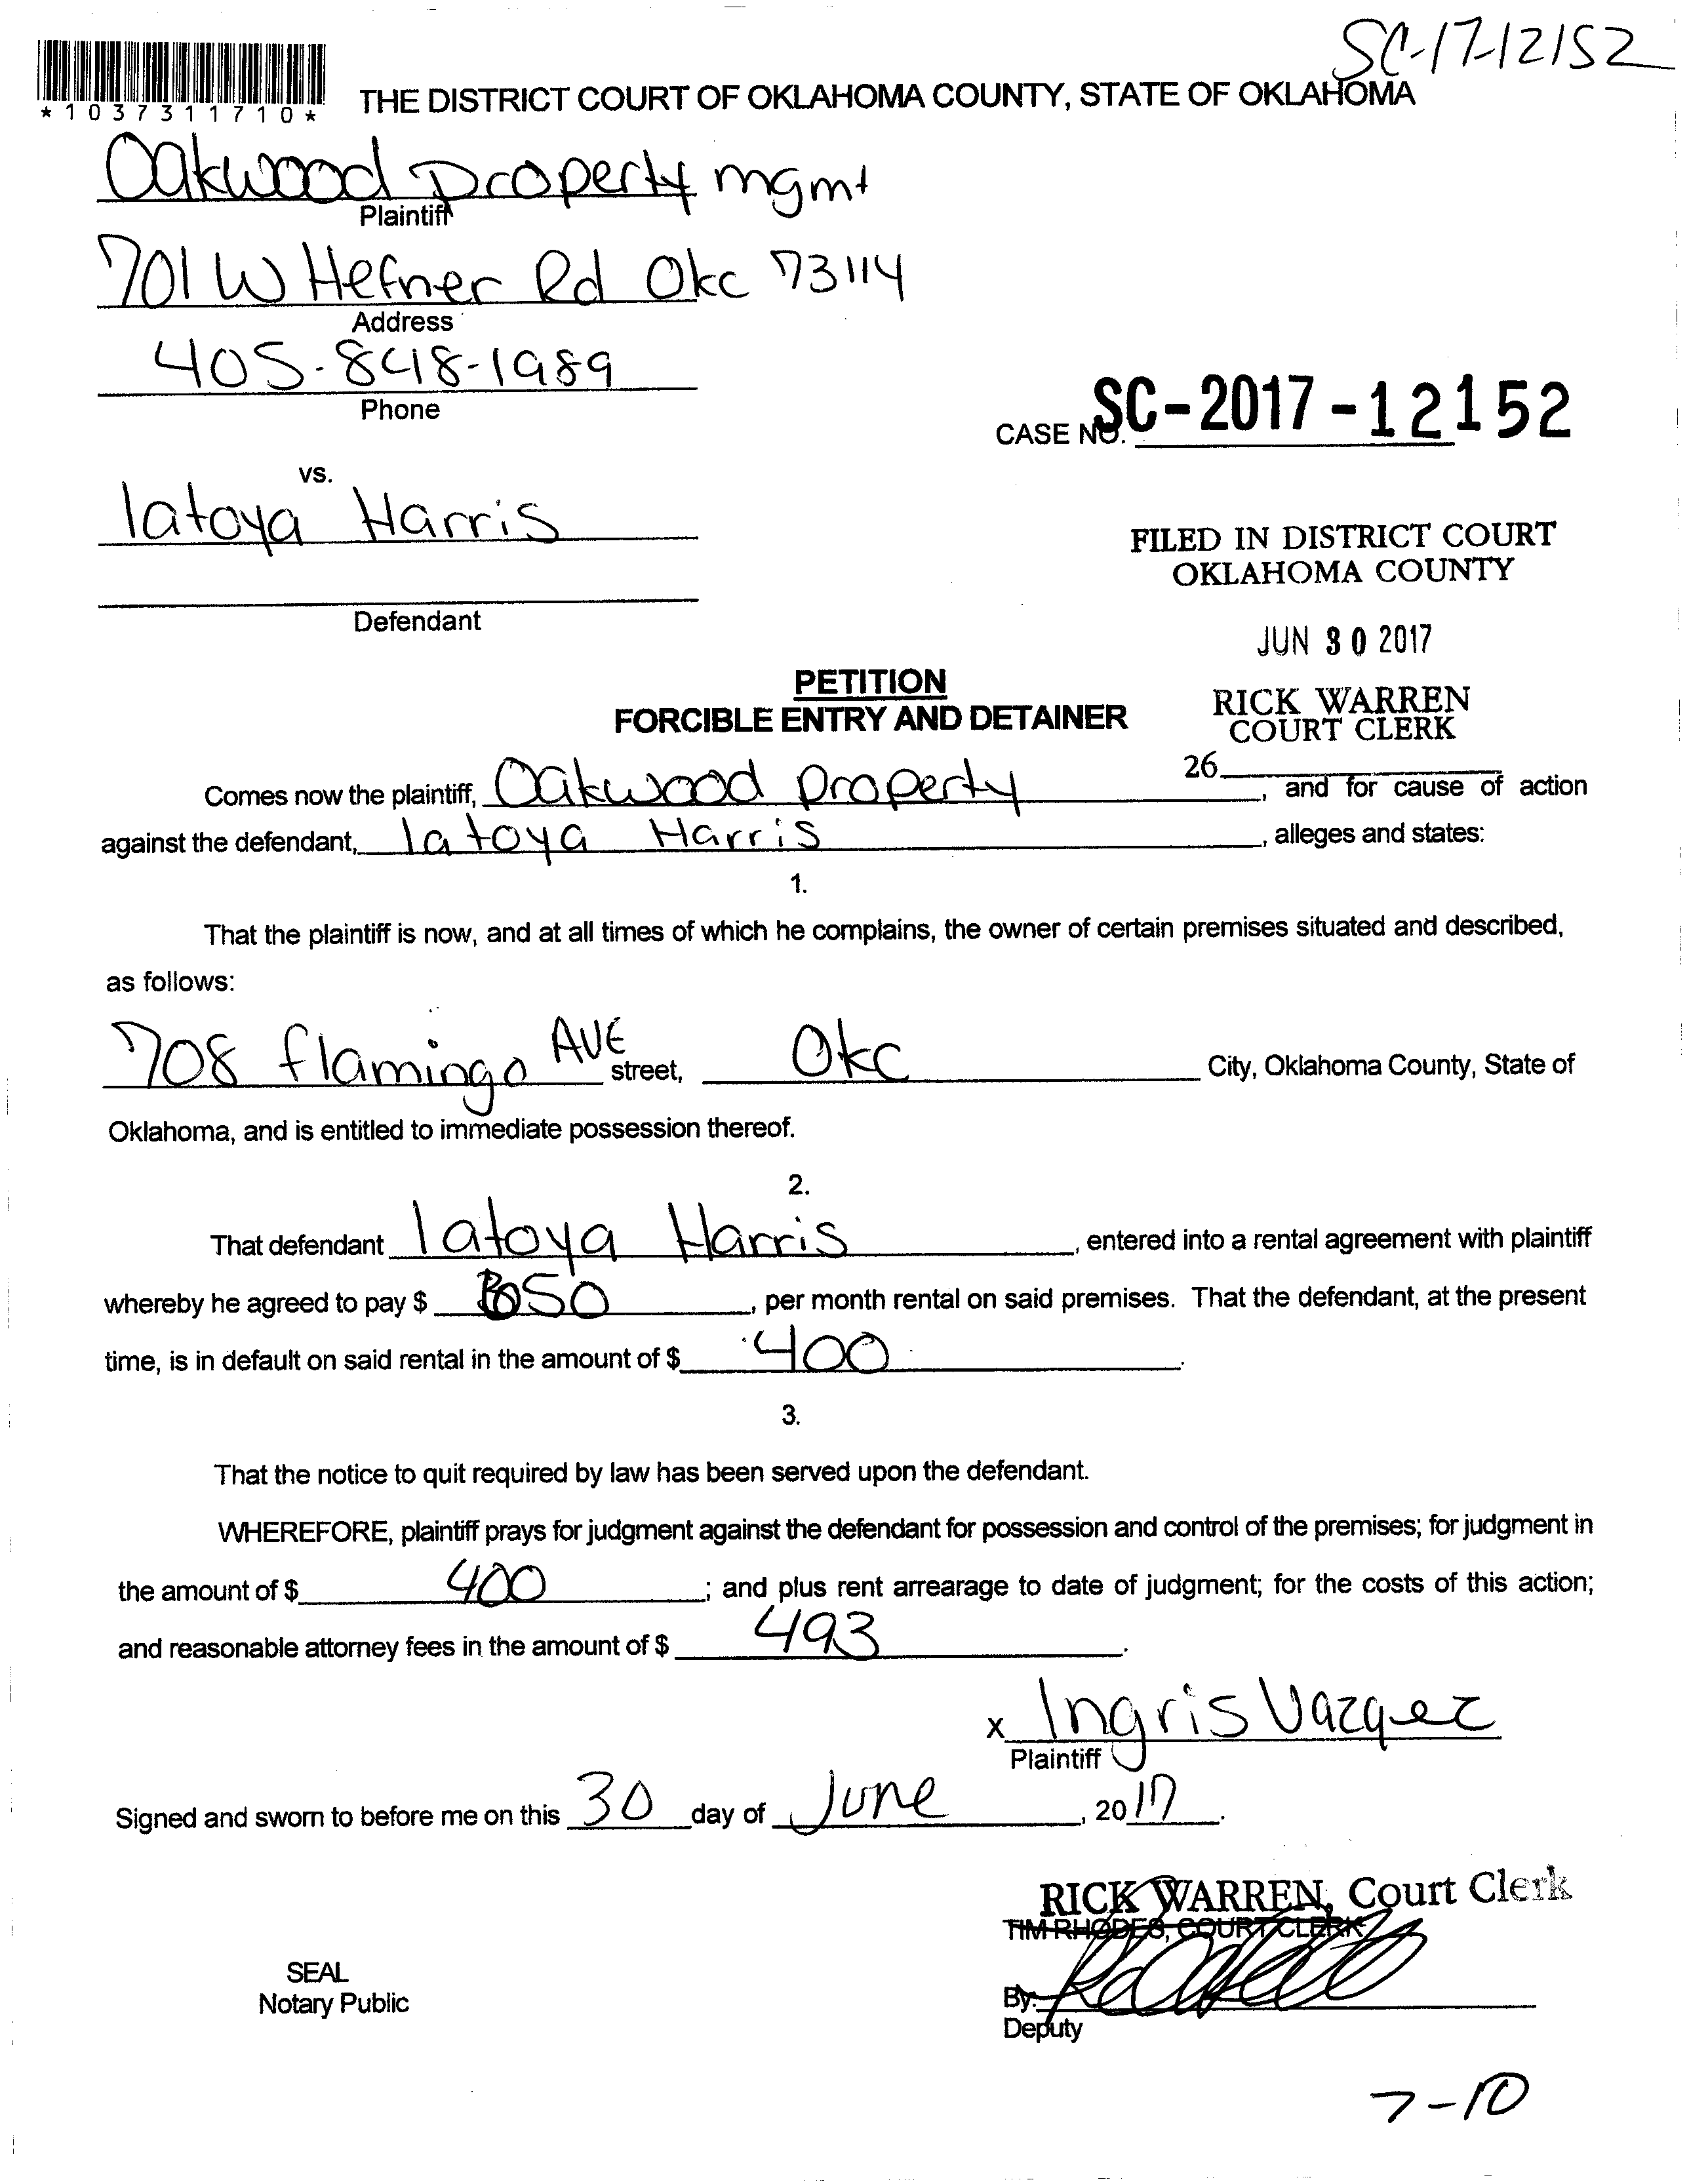 SC-17-12152
*1037311710*
THE DISTRICT COURT OF OKLAHOMA COUNTY, STATE OF OKLAHOMA
Oakwood Property mgmt
Plaintiff
701 W Hefner Rd Okc 73114
Address
405-848-1989
Phone
CASE NO. SC-2017-12152
vs.
latoya Harris
FILED IN DISTRICT COURT
OKLAHOMA COUNTY
Defendant
JUN 30 2017
PETITION
FORCIBLE ENTRY AND DETAINER
RICK WARREN
COURT CLERK
26
Comes now the plaintiff, Oakwood Property, and for cause of action
against the defendant, latoya Harris, alleges and states:
1.
That the plaintiff is now, and at all times of which he complains, the owner of certain premises situated and described,
as follows:
708 flamingo AVE street, Okc City, Oklahoma County, State of
Oklahoma, and is entitled to immediate possession thereof.
2.
That defendant latoya Harris, entered into a rental agreement with plaintiff
whereby he agreed to pay $ , per month rental on said premises. That the defendant, at the present
time, is in default on said rental in the amount of $ 400.
3.
That the notice to quit required by law has been served upon the defendant.
WHEREFORE, plaintiff prays for judgment against the defendant for possession and control of the premises; for judgment in
the amount of $ 400; and plus rent arrearage to date of judgment; for the costs of this action;
and reasonable attorney fees in the amount of $ 493.
x Ingris Vazquez
Plaintiff
Signed and sworn to before me on this 30 day of June, 2017.
RICK WARREN, Court Clerk
TIM RHODES, COURT CLERK
SEAL
Notary Public
By:
Deputy
7-10